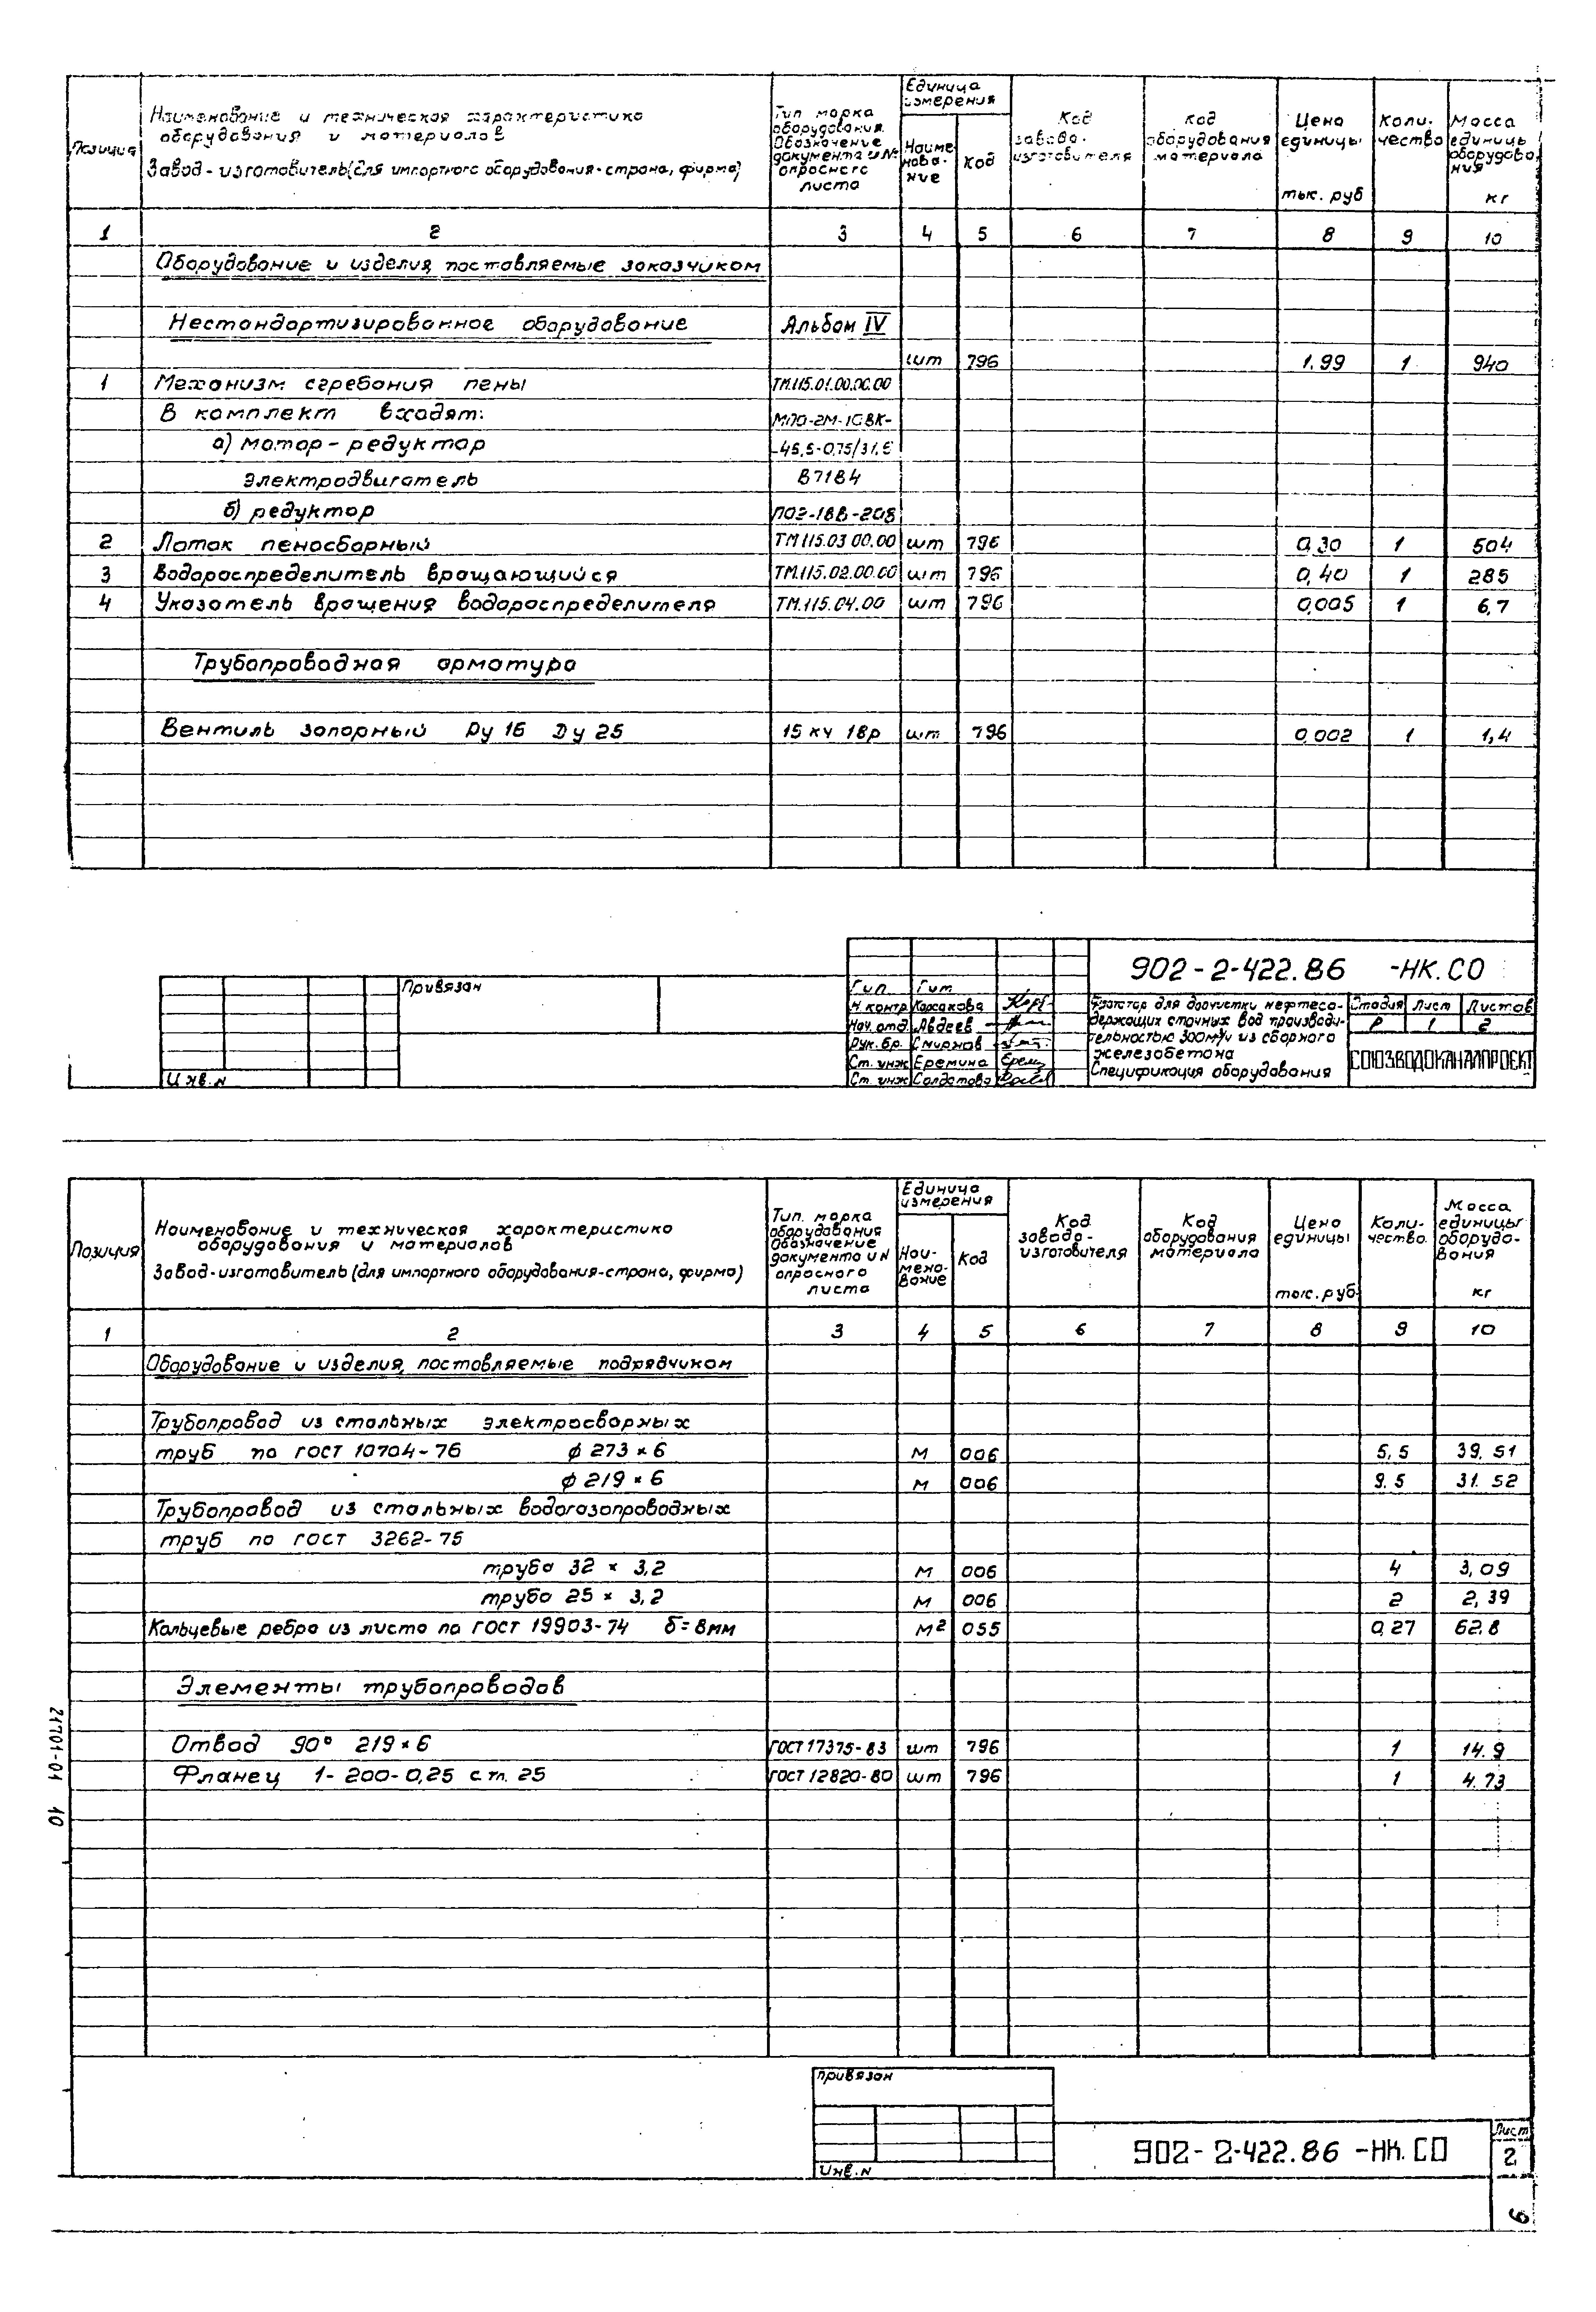 Позиция
Наименование и техническая характеристика
оборудования и материалов
Завод-изготовитель (для импортного оборудования-страна, фирма)
Тип марка
оборудования.
Обозначение
документа и №
опросного
листа
Единица
измерения
Наиме
нова-
ние
Код
Код
завода-
изготовителя
Код
оборудования
материала
Цена
единицы
тыс. руб
Коли-
чество
Масса
единицы
оборудова
ния
кг
1 2 3 4 5 6 7 8 9 10
Оборудование и изделия, поставляемые заказчиком
Нестандартизированное оборудование Альбом IV
шт 796 1.99 1 940
1 Механизм сгребания пены ТМ.115.01.00.00.00
В комплект входят: МПО-2М-10ВК-
а) мотор-редуктор -45,5-0,75/31,6
электродвигатель В71В4
б) редуктор ПО2-18В-208
2 Лоток пеносборный ТМ 115.03 00.00 шт 796 0,30 1 504
3 Водораспределитель вращающийся ТМ.115.02.00.00 шт 796 0,40 1 285
4 Указатель вращения водораспределителя ТМ.115.04.00 шт 796 0,005 1 6,7
Трубопроводная арматура
Вентиль запорный Ру 16 Ду 25 15 кч 18р шт 796 0,002 1 1,4
Привязан
Инв.N
902-2-422.86 -НК.СО
Гип Гит
Н контр Корсакова
Нач. отд. Авдеев
Рук. бр. Смирнов
Ст. инж Еремина
Ст. инж Солдатова
Флотатор для доочистки нефтесо-
держащих сточных вод производи-
тельностью 300м³/ч из сборного
железобетона
Спецификация оборудования
Стадия Лист Листов
Р 1 2
СОЮЗВОДОКАНАЛПРОЕКТ
Позиция
Наименование и техническая характеристика
оборудования и материалов
Завод-изготовитель (для импортного оборудования-страна, фирма)
Тип. марка
оборудования
Обозначение
документа и N
опросного
листа
Единица
измерения
Наи-
мено-
вание
Код
Код
завода-
изготовителя
Код
оборудования
материала
Цена
единицы
тыс. руб
Коли-
чество.
Масса
единицы
оборудо-
вания
кг
1 2 3 4 5 6 7 8 9 10
Оборудование и изделия, поставляемые подрядчиком
Трубопровод из стальных электросварных
труб по ГОСТ 10704-76 ф 273×6 М 006 5,5 39.51
ф 219×6 М 006 9.5 31.52
Трубопровод из стальных водогазопроводных
труб по ГОСТ 3262-75
труба 32 × 3,2 М 006 4 3,09
труба 25 × 3,2 М 006 2 2,39
Кольцевые ребра из листа по ГОСТ 19903-74 δ=8мм М² 055 0,27 62.8
Элементы трубопроводов
Отвод 90° 219×6 ГОСТ 17375-83 шт 796 1 14.9
Фланец 1-200-0,25 с.тл. 25 ГОСТ 12820-80 шт 796 1 4.73
21701-04 10
привязан
Инв.N
902-2-422.86 -НК.СО
Лист
2
6